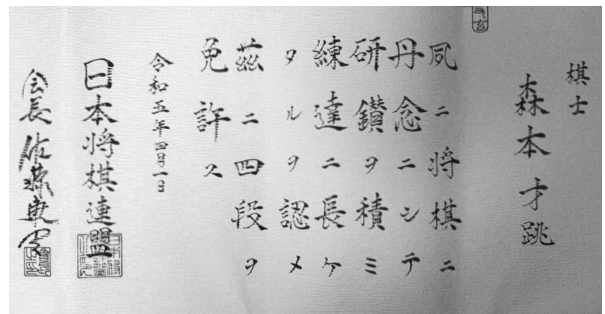 棋士
森本才跳
夙ニ将棋ニ
丹念ニシテ
研鑚ヲ積ミ
練達ニ長ケ
タルヲ認メ
茲ニ四段ヲ
免許ス
令和五年四月一日
日本将棋連盟
会長佐藤康光